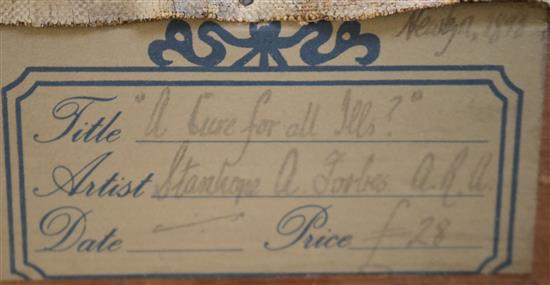 Newlyn, 1898
Title "A Cure for all Ills?"
Artist Stanhope A. Forbes A.R.A.
Date — Price £28